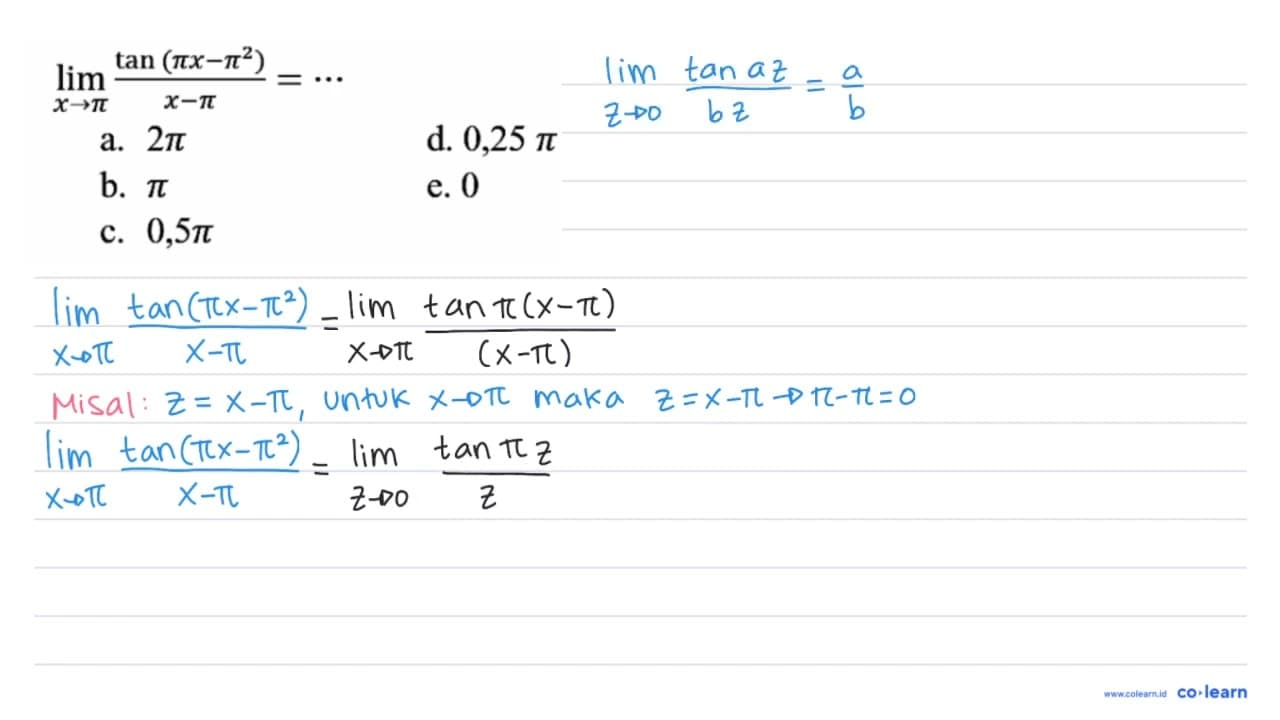 lim x→π tan (πx−π²) / x−π = ...
a. 2π
b. π
c. 0,5π
d. 0,25 π
e. 0
lim z→0 tan az / bz = a/b
lim x→π tan(πx−π²) / x−π = lim x→π tan π(x−π) / (x−π)
Misal: z = x−π, untuk x→π maka z = x−π → π−π = 0
lim x→π tan(πx−π²) / x−π = lim z→0 tan π z / z
www.colearn.id co·learn